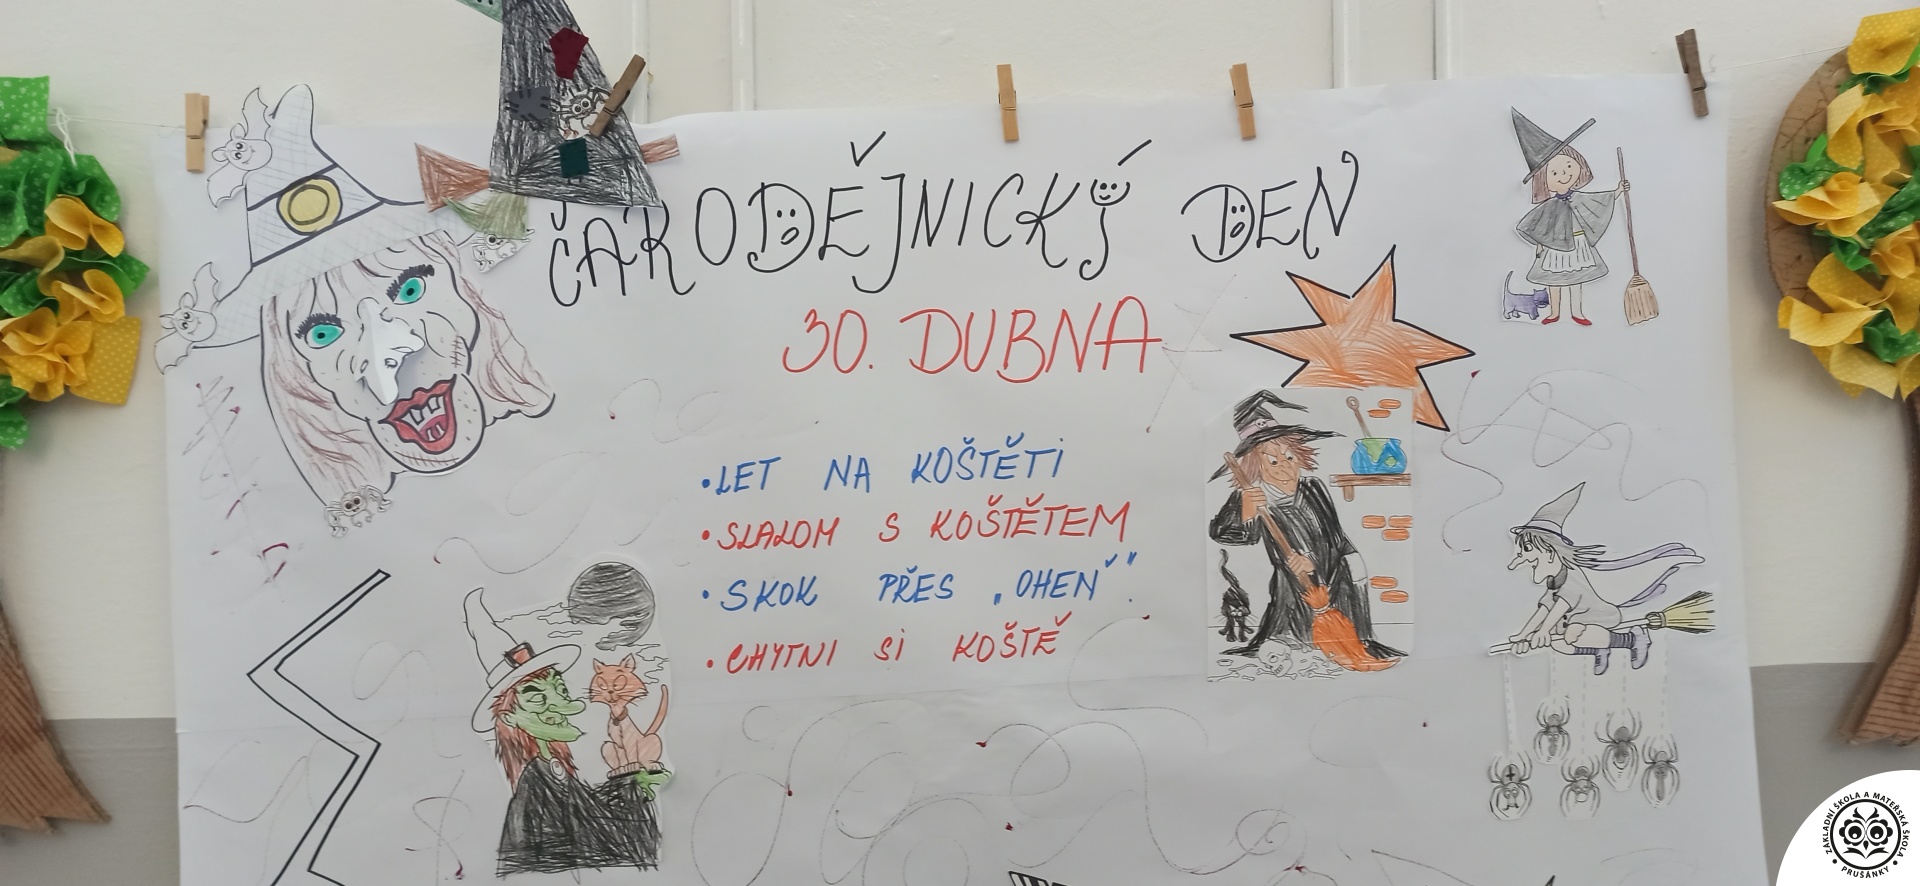 ČARODĚJNICKÝ DEN
30. DUBNA
•LET NA KOŠTĚTI
•SLALOM S KOŠTĚTEM
•SKOK PŘES „OHEŇ"
•CHYTNI SI KOŠTĚ
ZÁKLADNÍ ŠKOLA A MATEŘSKÁ ŠKOLA
• PRUŠÁNKY •